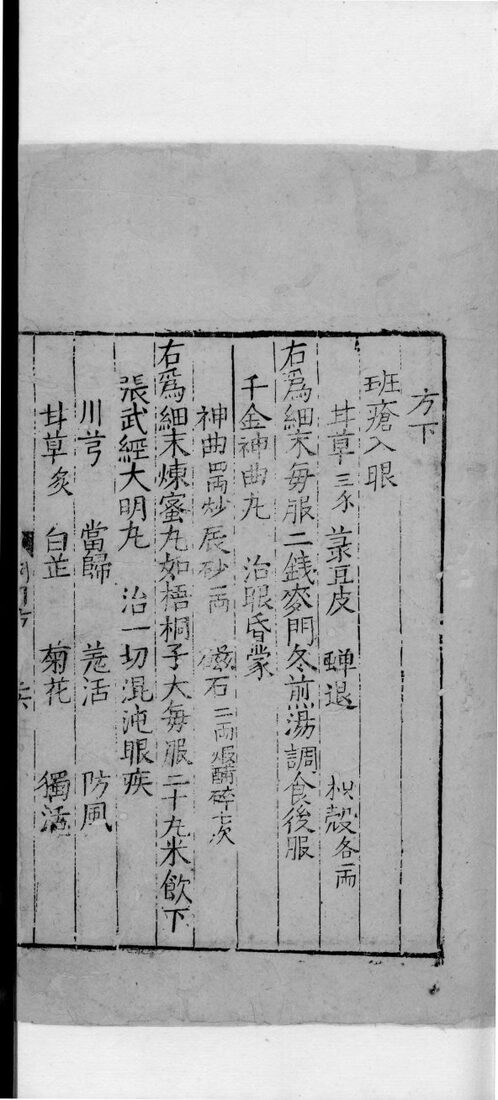 方下
班瘡入眼
甘草三分 菉豆皮 蟬退 枳殼各一兩
右爲細末每服二錢麥門冬煎湯調食後服
千金神曲丸 治眼昏蒙
神曲四兩炒辰砂一兩 磁石二兩煅醋碎七次
右爲細末煉蜜丸如梧桐子大每服二十丸米飲下
張武經大明丸 治一切混沌眼疾
川芎 當歸 羗活 防風
甘草炙 白芷 菊花 獨活